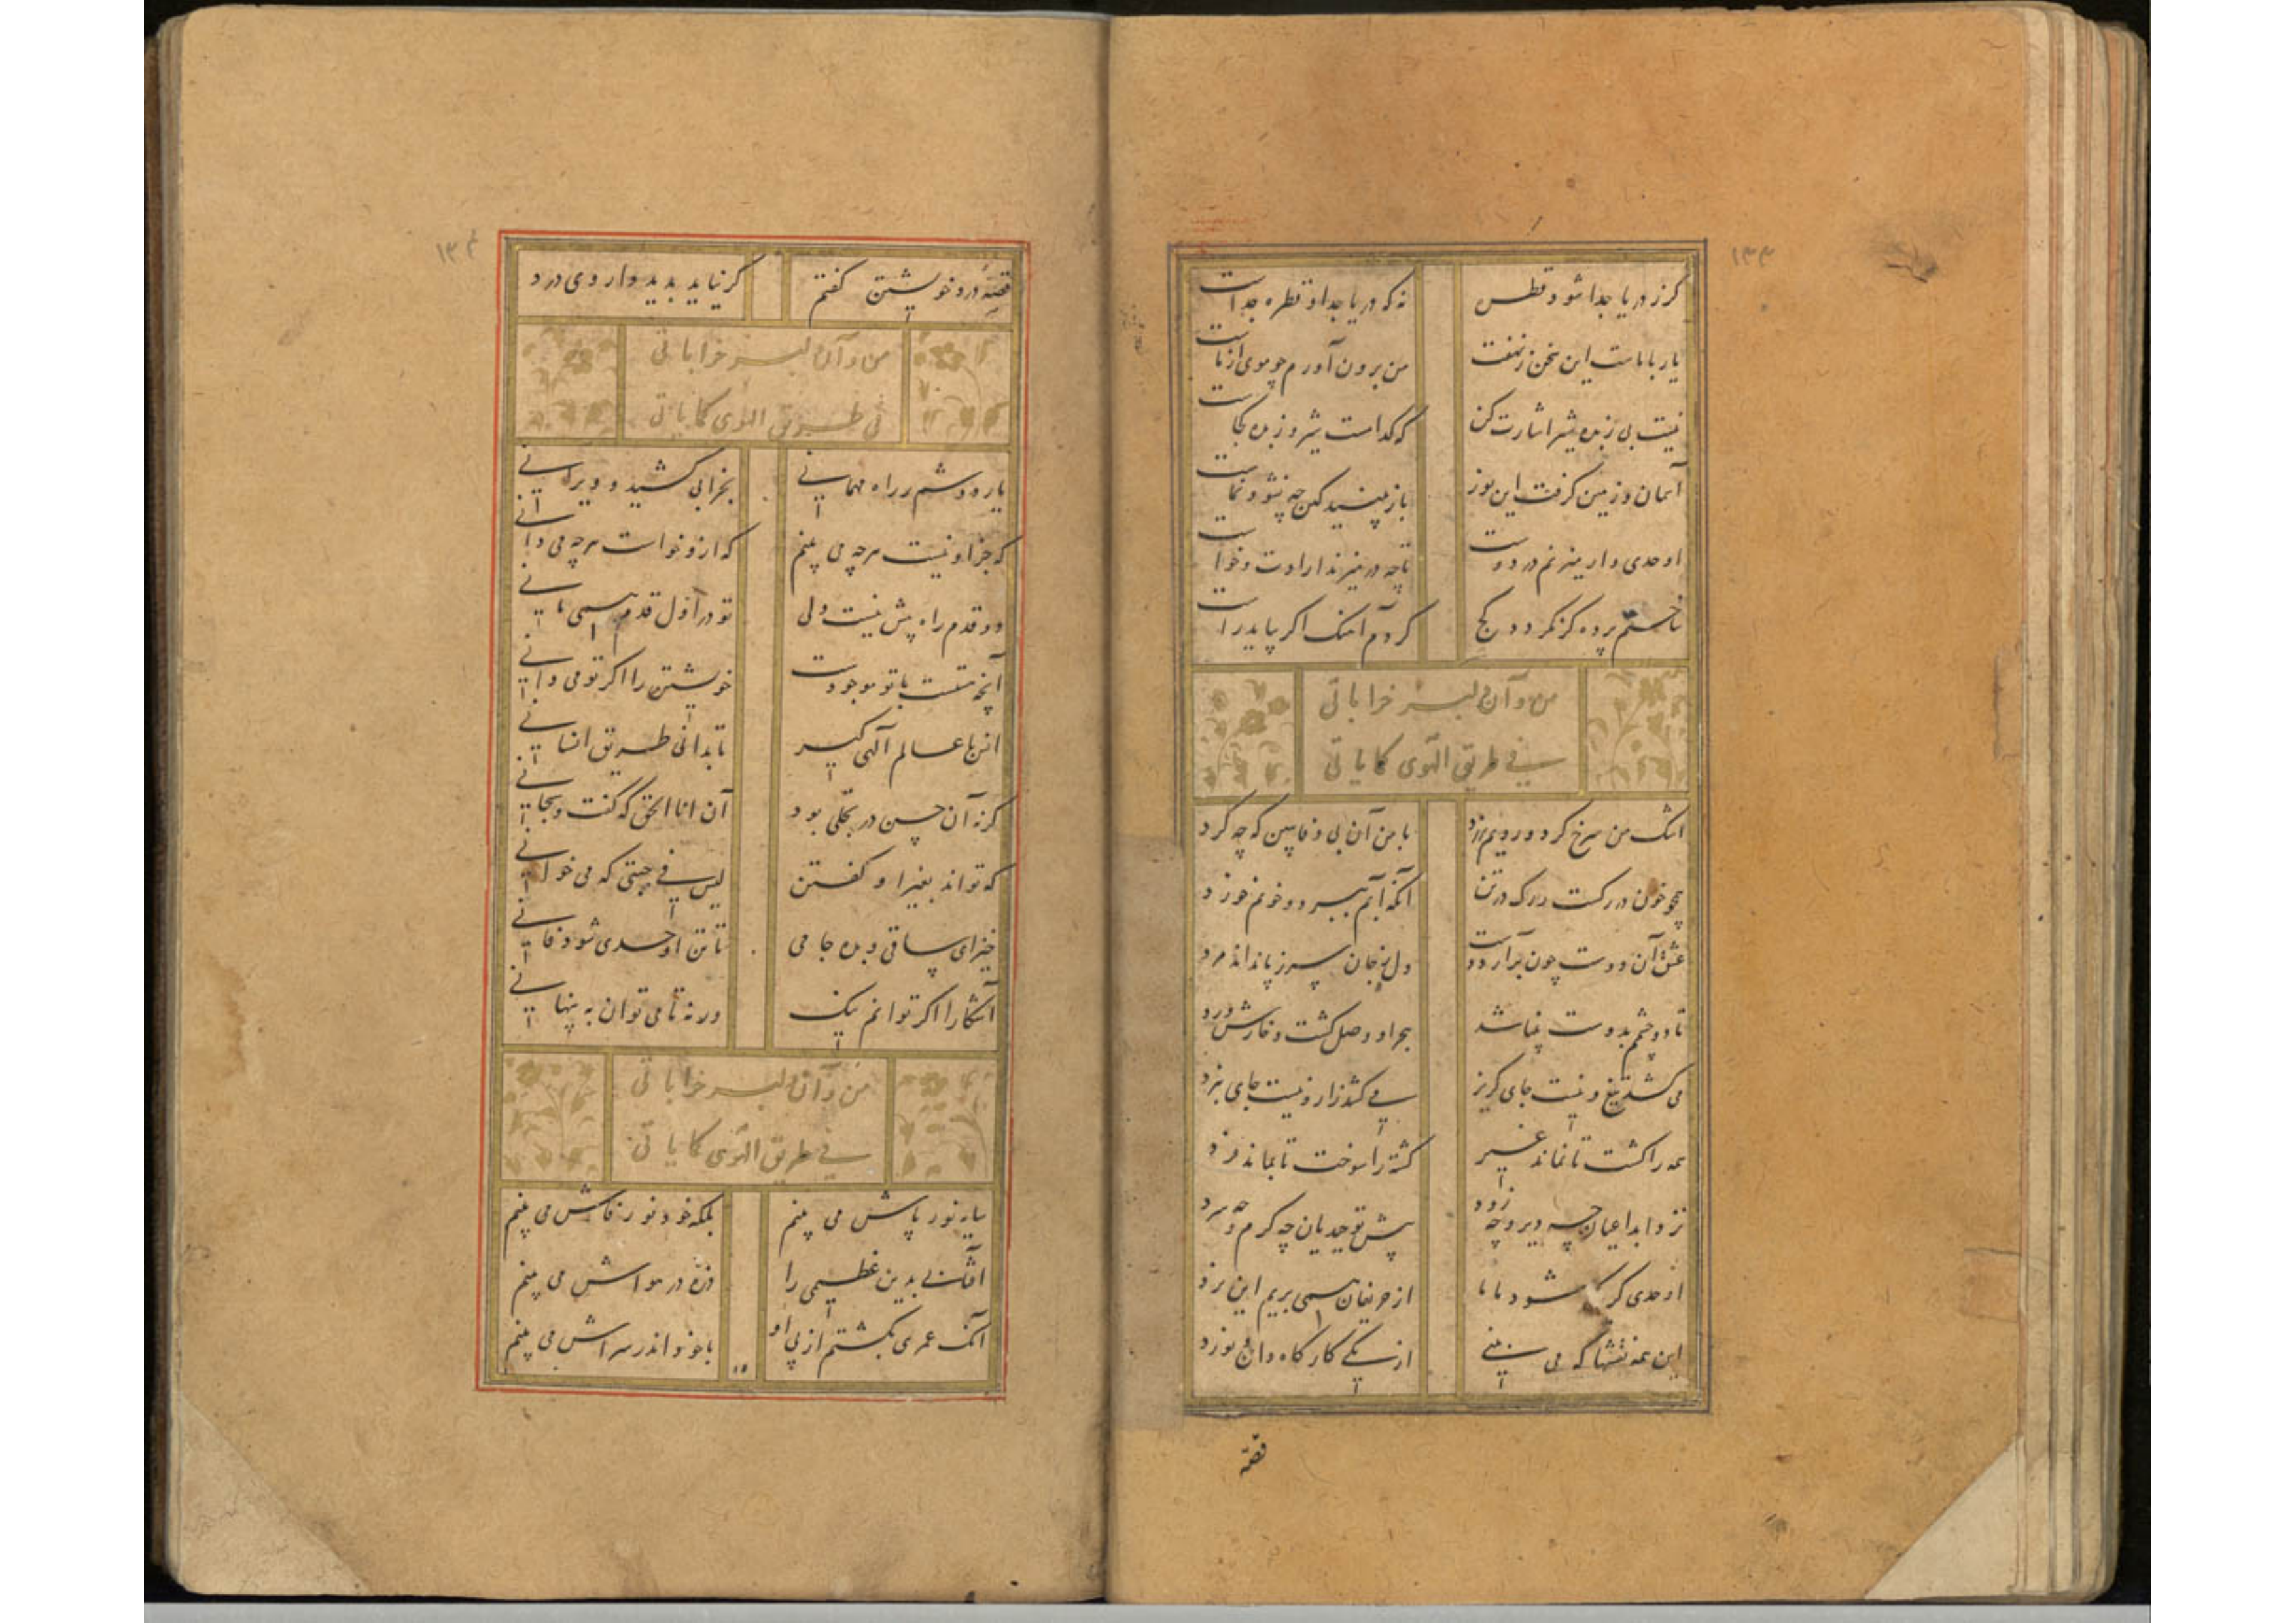 ۱۳۳
کر ز دریا جدا شود قطره نه که دریا جدا و قطره جداست
یار با ماست این سخن ز نهفت من برون آورم چو موی از ماست
نیست بی زبده شیر اشارت کن که کدامست شیر و زبده کجاست
آسمان و زمین کرفت این نور باز بینید کین چه نشو و نماست
اوحدی وار میزنم در دوست تا چه در میزند ارادت و خواست
ساختم پرده کز نکردد کج کردم آهنک اکر بیاید راست
من و آن دلبر خراباتی
فی طریق الهوی کما یاتی
اشک من سرخ کرد و رویم زرد با من آن بی وفا ببین که چه کرد
همچو خون در رکست و رک در تن آنکه آبم ببرد و خونم خورد
عشق آن دوست چون برآرد دست دل ز جان سر ز پا نداند مرد
تا دو چشمم بدوست بینا شد هجر او وصل کشت و خارش ورد
می کشد تیغ و نیست جای کریز می کشد زار و نیست جای نبرد
همه را کشت تا نماند غیر کشته را سوخت تا بماند فرد
نزد ابداعیان چه دیر و چه زود پیش توحیدیان چه کرم و چه سرد
اوحدی کر یکی شود با ما از حریفان همی بریم این نرد
این همه نقشها که می بینی از یکی کارکاه دان نورد
قصه
۱۳۴
قصه درد خویشتن کفتم کر نیاید بدید داروی درد
من و آن دلبر خراباتی
فی طریق الهوی کما یاتی
یار دوشم ز راه مهمانی بخرابی کشید و ویرانی
که جز او نیست هرچه می بینم که ازو خواست هرچه می دانی
دو قدم راه پیش نیست ولی تو در اول قدم همی مانی
آنچه هستست با تو موجودست خویشتن را اکر تو می دانی
انس با عالم الهی کیر تا بدانی طریق انسانی
کر نه آن حسن در تجلی بود آن انا الحق که کفت و سبحانی
که تواند بغیر او کفتن لیس فی جبتی که می خوانی
خیز ای ساقی و بده جامی تا تن اوحدی شود فانی
آشکارا اکر توانم نیک ور نه تا می توان به پنهانی
من و آن دلبر خراباتی
فی طریق الهوی کما یاتی
سایه نور پاش می بینم بلکه خود نور فاش می بینم
آفتابی بدین عظیمی را ذره در هواش می بینم
آنکه عمری بکشتم از پی او با خود اندر سراش می بینم